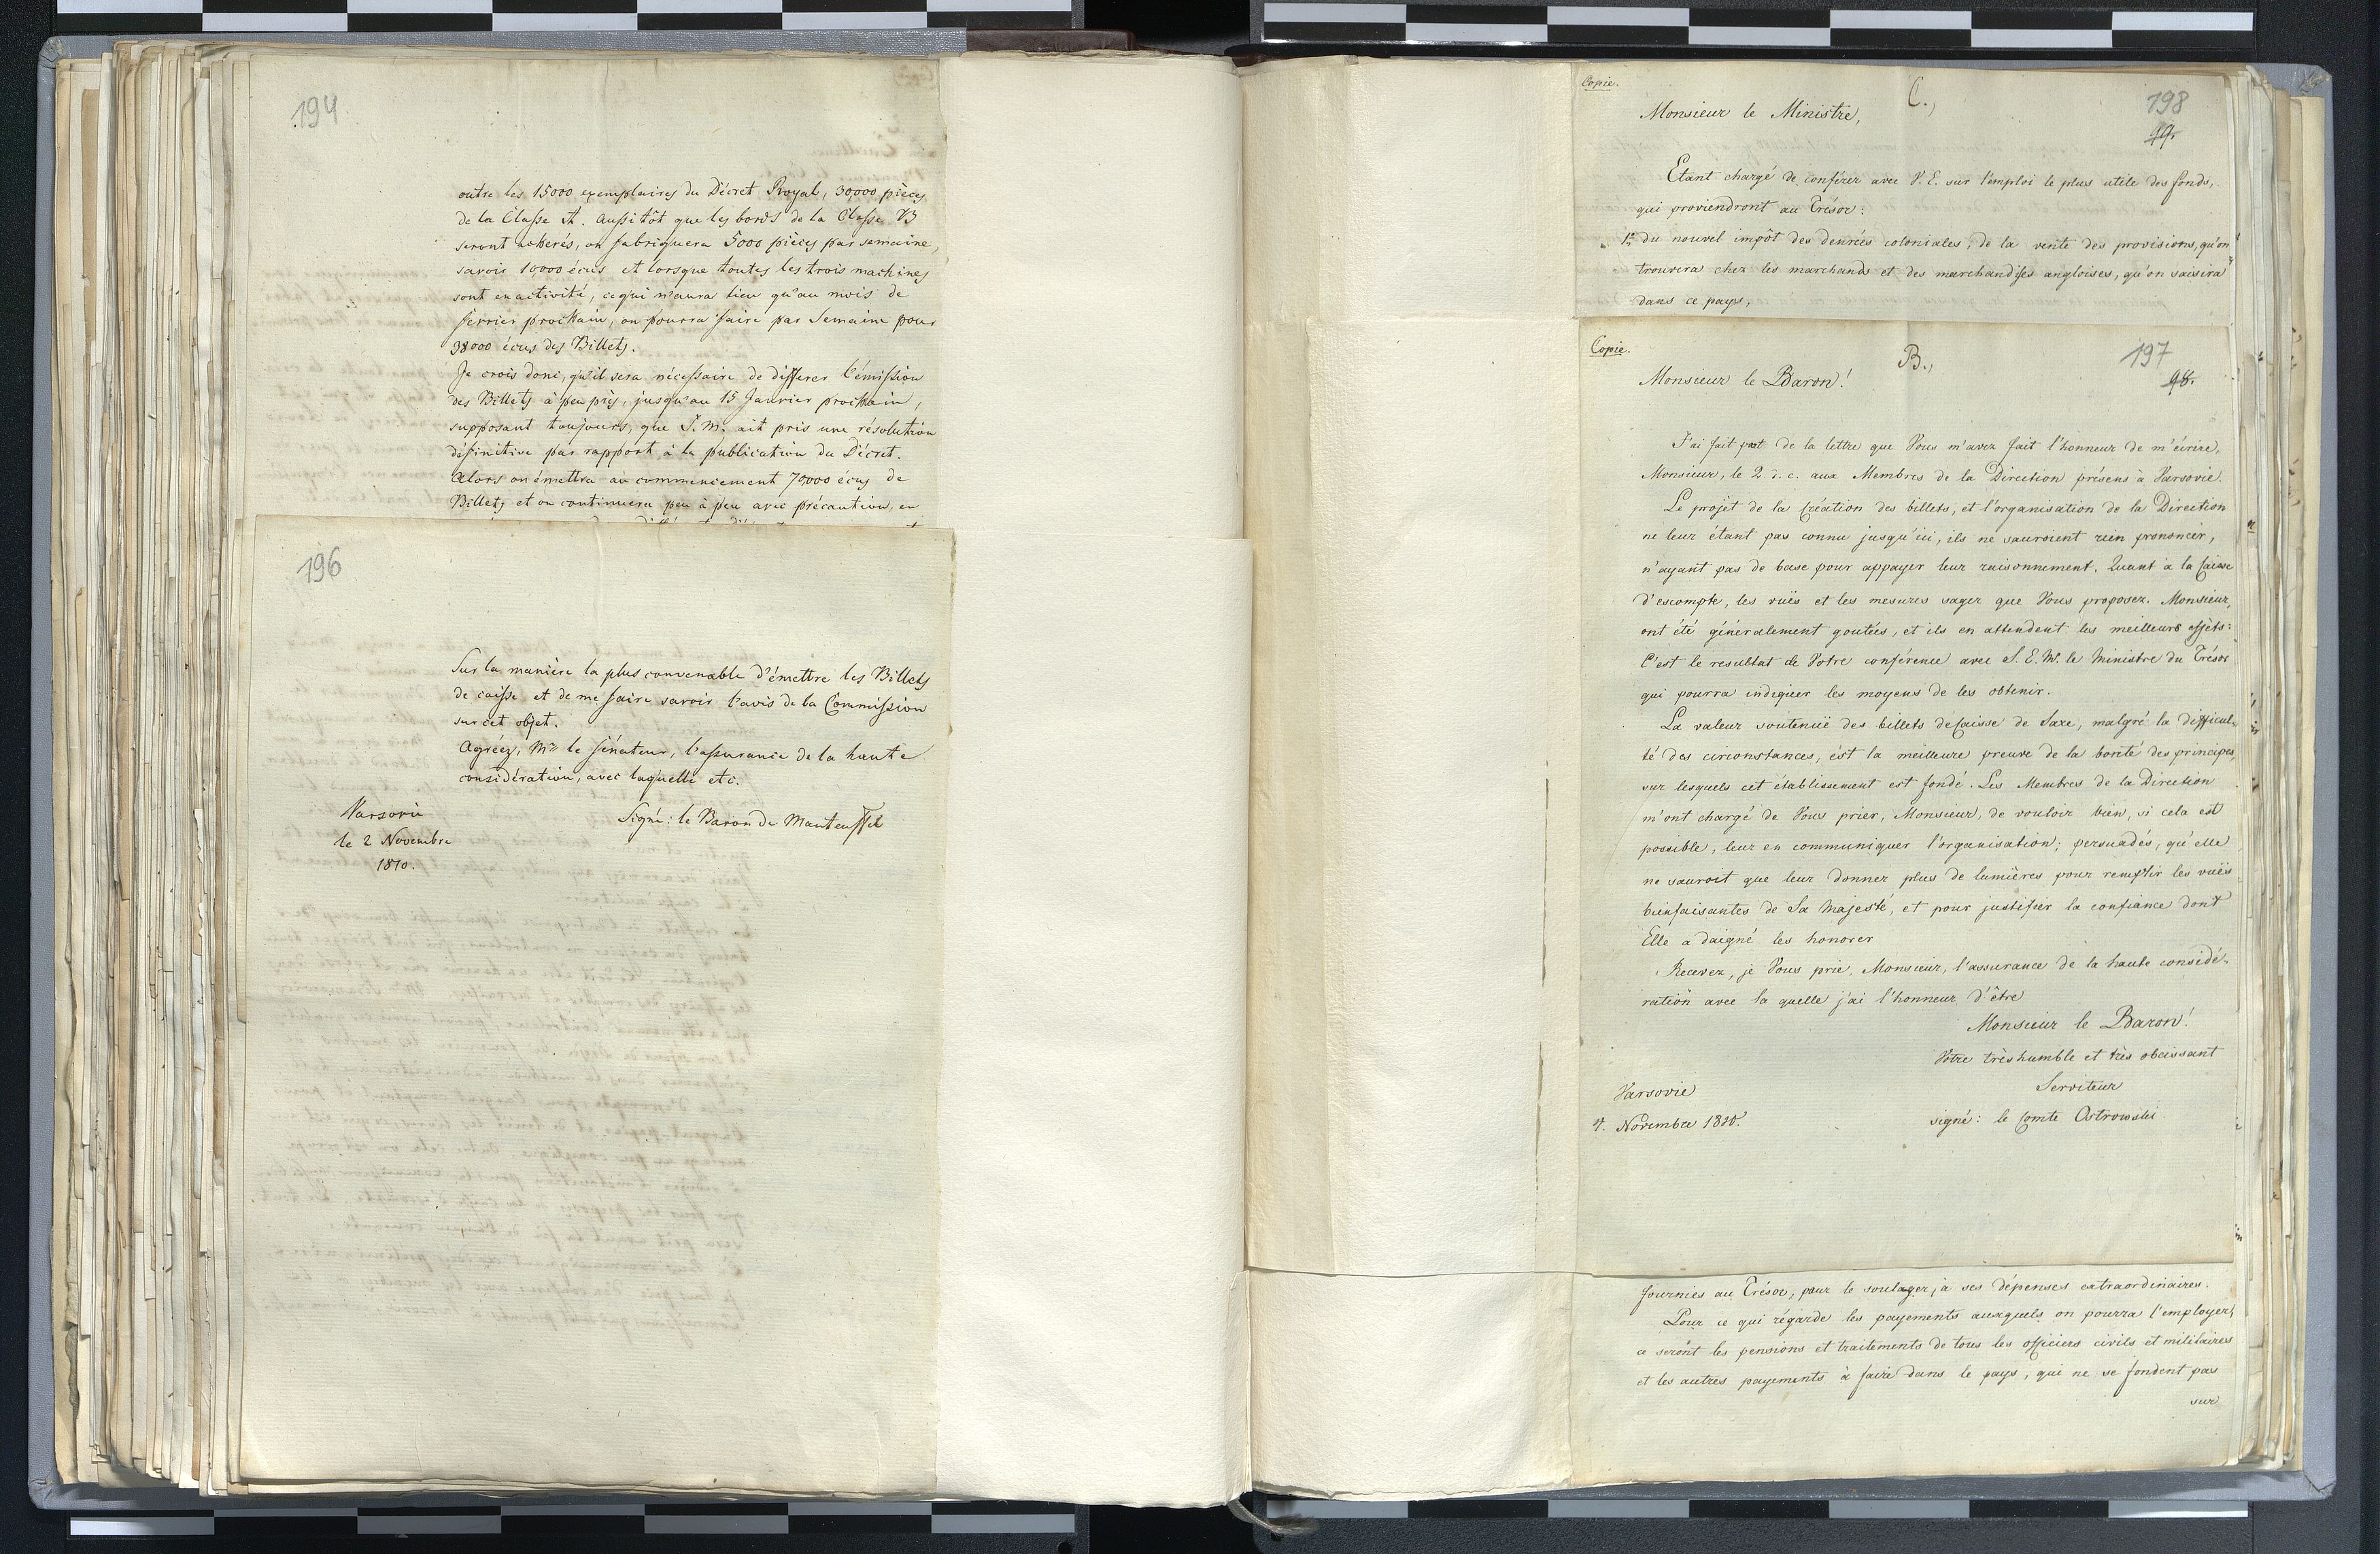 194
outre les 15000 exemplaires du Décret Royal, 30,000 pièces
de la Classe A. Aussitôt que les bords de la Classe B
seront acherés, on fabriquera 5000 pièces par semaine,
savoir 10,000 écus et lorsque toutes les trois machines
sont en activité, ce qui n'aura lieu qu'au mois de
fevrier prochain, on pourra faire par Semaine pour
38000 écus des Billets.
Je crois donc, qu'il sera nécessaire de differer l'émission
des Billets à peu près, jusqu'au 15 Janvier prochain,
supposant toujours, que S. M. ait pris une résolution
définitive par rapport à la publication du Décret.
Alors on émettra au commencement 70,000 écus de
Billets et on continuera peu à peu avec précaution, en
196
Sur la manière la plus convenable d'émettre les Billets
de caisse et de me faire savoir l'avis de la Commission
sur cet objet.
Agréez, Mr le Sénateur, l'assurance de la haute
considération, avec laquelle etc.
Varsovie
le 2 Novembre
1810.
Signé: le Baron de Manteuffel
Copie.
C.,
198
99.
Monsieur le Ministre,
Etant chargé de conférer avec V. E. sur l'emploi le plus utile des fonds,
qui proviendront au Trésor:
1º du nouvel impôt des denrées coloniales, de la vente des provisions, qu'on
trouvera chez les marchands et des marchandises angloises, qu'on saisira
dans ce pays,
Copie.
B.,
197
98.
Monsieur le Baron!
J'ai fait part de la lettre que Vous m'avez fait l'honneur de m'écrire,
Monsieur, le 2. d. c. aux Membres de la Direction présens à Varsovie.
Le projet de la création des billets, et l'organisation de la Direction
ne leur étant pas connu jusqu'ici, ils ne sauroient rien prononcer,
n'ayant pas de base pour appayer leur raisonnement. Quant à la Caisse
d'escompte, les vuës et les mesures sages que Vous proposez. Monsieur,
ont été généralement goutées, et ils en attendent les meilleurs effets:
C'est le resultat de Votre conférence avec S. E. M. le Ministre du Trésor
qui pourra indiquer les moyens de les obtenir.
La valeur soutenuë des billets de Caisse de Saxe, malgré la difficul-
té des circonstances, est la meilleure preuve de la bonté des principes,
sur lesquels cet établissement est fondé. Les Membres de la Direction
m'ont chargé de Vous prier, Monsieur, de vouloir bien, si cela est
possible, leur en communiquer l'organisation; persuadés, qu'elle
ne sauroit que leur donner plus de lumières pour remplir les vuës
bienfaisantes de Sa Majesté, et pour justifier la confiance dont
Elle a daigné les honorer
Recevez, je Vous prie, Monsieur, l'assurance de la haute considé-
ration avec la quelle j'ai l'honneur d'être
Monsieur le Baron!
Votre très humble et très obeissant
Serviteur
Varsovie
4. Novembre 1810.
signé: le Comte Ostrowski
fournies au Trésor, pour le soulager, à ses dépenses extraordinaires.
Pour ce qui régarde les payements auxquels on pourra l'employer,
ce seront les pensions et traitements de tous les officiers civils et militaires
et les autres payements à faire dans le pays, qui ne se fondent pas
sur